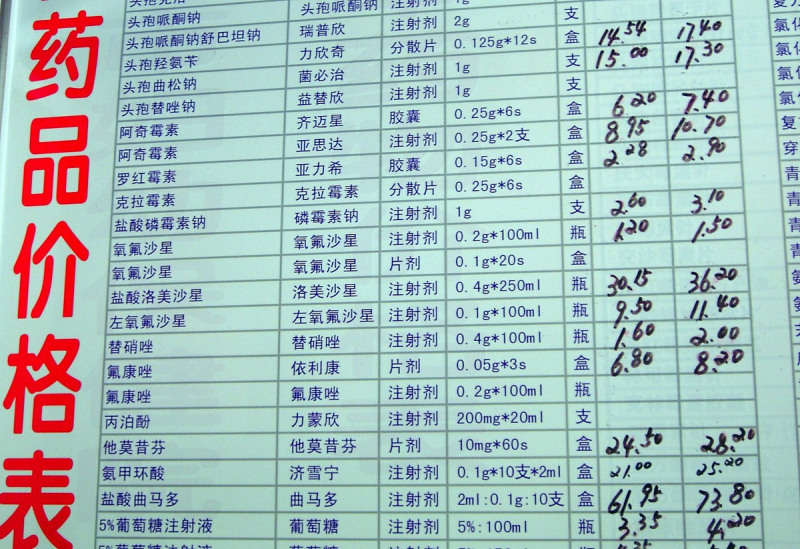 药品价格表
头孢哌酮钠 头孢哌酮钠 注射剂
头孢哌酮钠舒巴坦钠 瑞普欣 注射剂 2g 支
头孢羟氨苄 力欣奇 分散片 0.125g*12s 盒 14.54 17.40
头孢曲松钠 菌必治 注射剂 1g 支 15.00 17.30
头孢替唑钠 益替欣 注射剂 1g 支
阿奇霉素 齐迈星 胶囊 0.25g*6s 盒 6.20 7.40
阿奇霉素 亚思达 注射剂 0.25g*2支 盒 8.95 10.70
罗红霉素 亚力希 胶囊 0.15g*6s 盒 2.28 2.90
克拉霉素 克拉霉素 分散片 0.25g*6s 盒
盐酸磷霉素钠 磷霉素钠 注射剂 1g 支 2.60 3.10
氧氟沙星 氧氟沙星 注射剂 0.2g*100ml 瓶 1.20 1.50
氧氟沙星 氧氟沙星 片剂 0.1g*20s 盒
盐酸洛美沙星 洛美沙星 注射剂 0.4g*250ml 瓶 30.15 36.20
左氧氟沙星 左氧氟沙星 注射剂 0.1g*100ml 瓶 9.50 11.40
替硝唑 替硝唑 注射剂 0.4g*100ml 瓶 1.60 2.00
氟康唑 依利康 片剂 0.05g*3s 盒 6.80 8.20
氟康唑 氟康唑 注射剂 0.2g*100ml 瓶
丙泊酚 力蒙欣 注射剂 200mg*20ml 支
他莫昔芬 他莫昔芬 片剂 10mg*60s 盒 24.50 28.20
氨甲环酸 济雪宁 注射剂 0.1g*10支*2ml 盒 21.00 25.20
盐酸曲马多 曲马多 注射剂 2ml:0.1g:10支 盒 61.95 73.80
5%葡萄糖注射液 葡萄糖 注射剂 5%:100ml 瓶 3.35 4.20